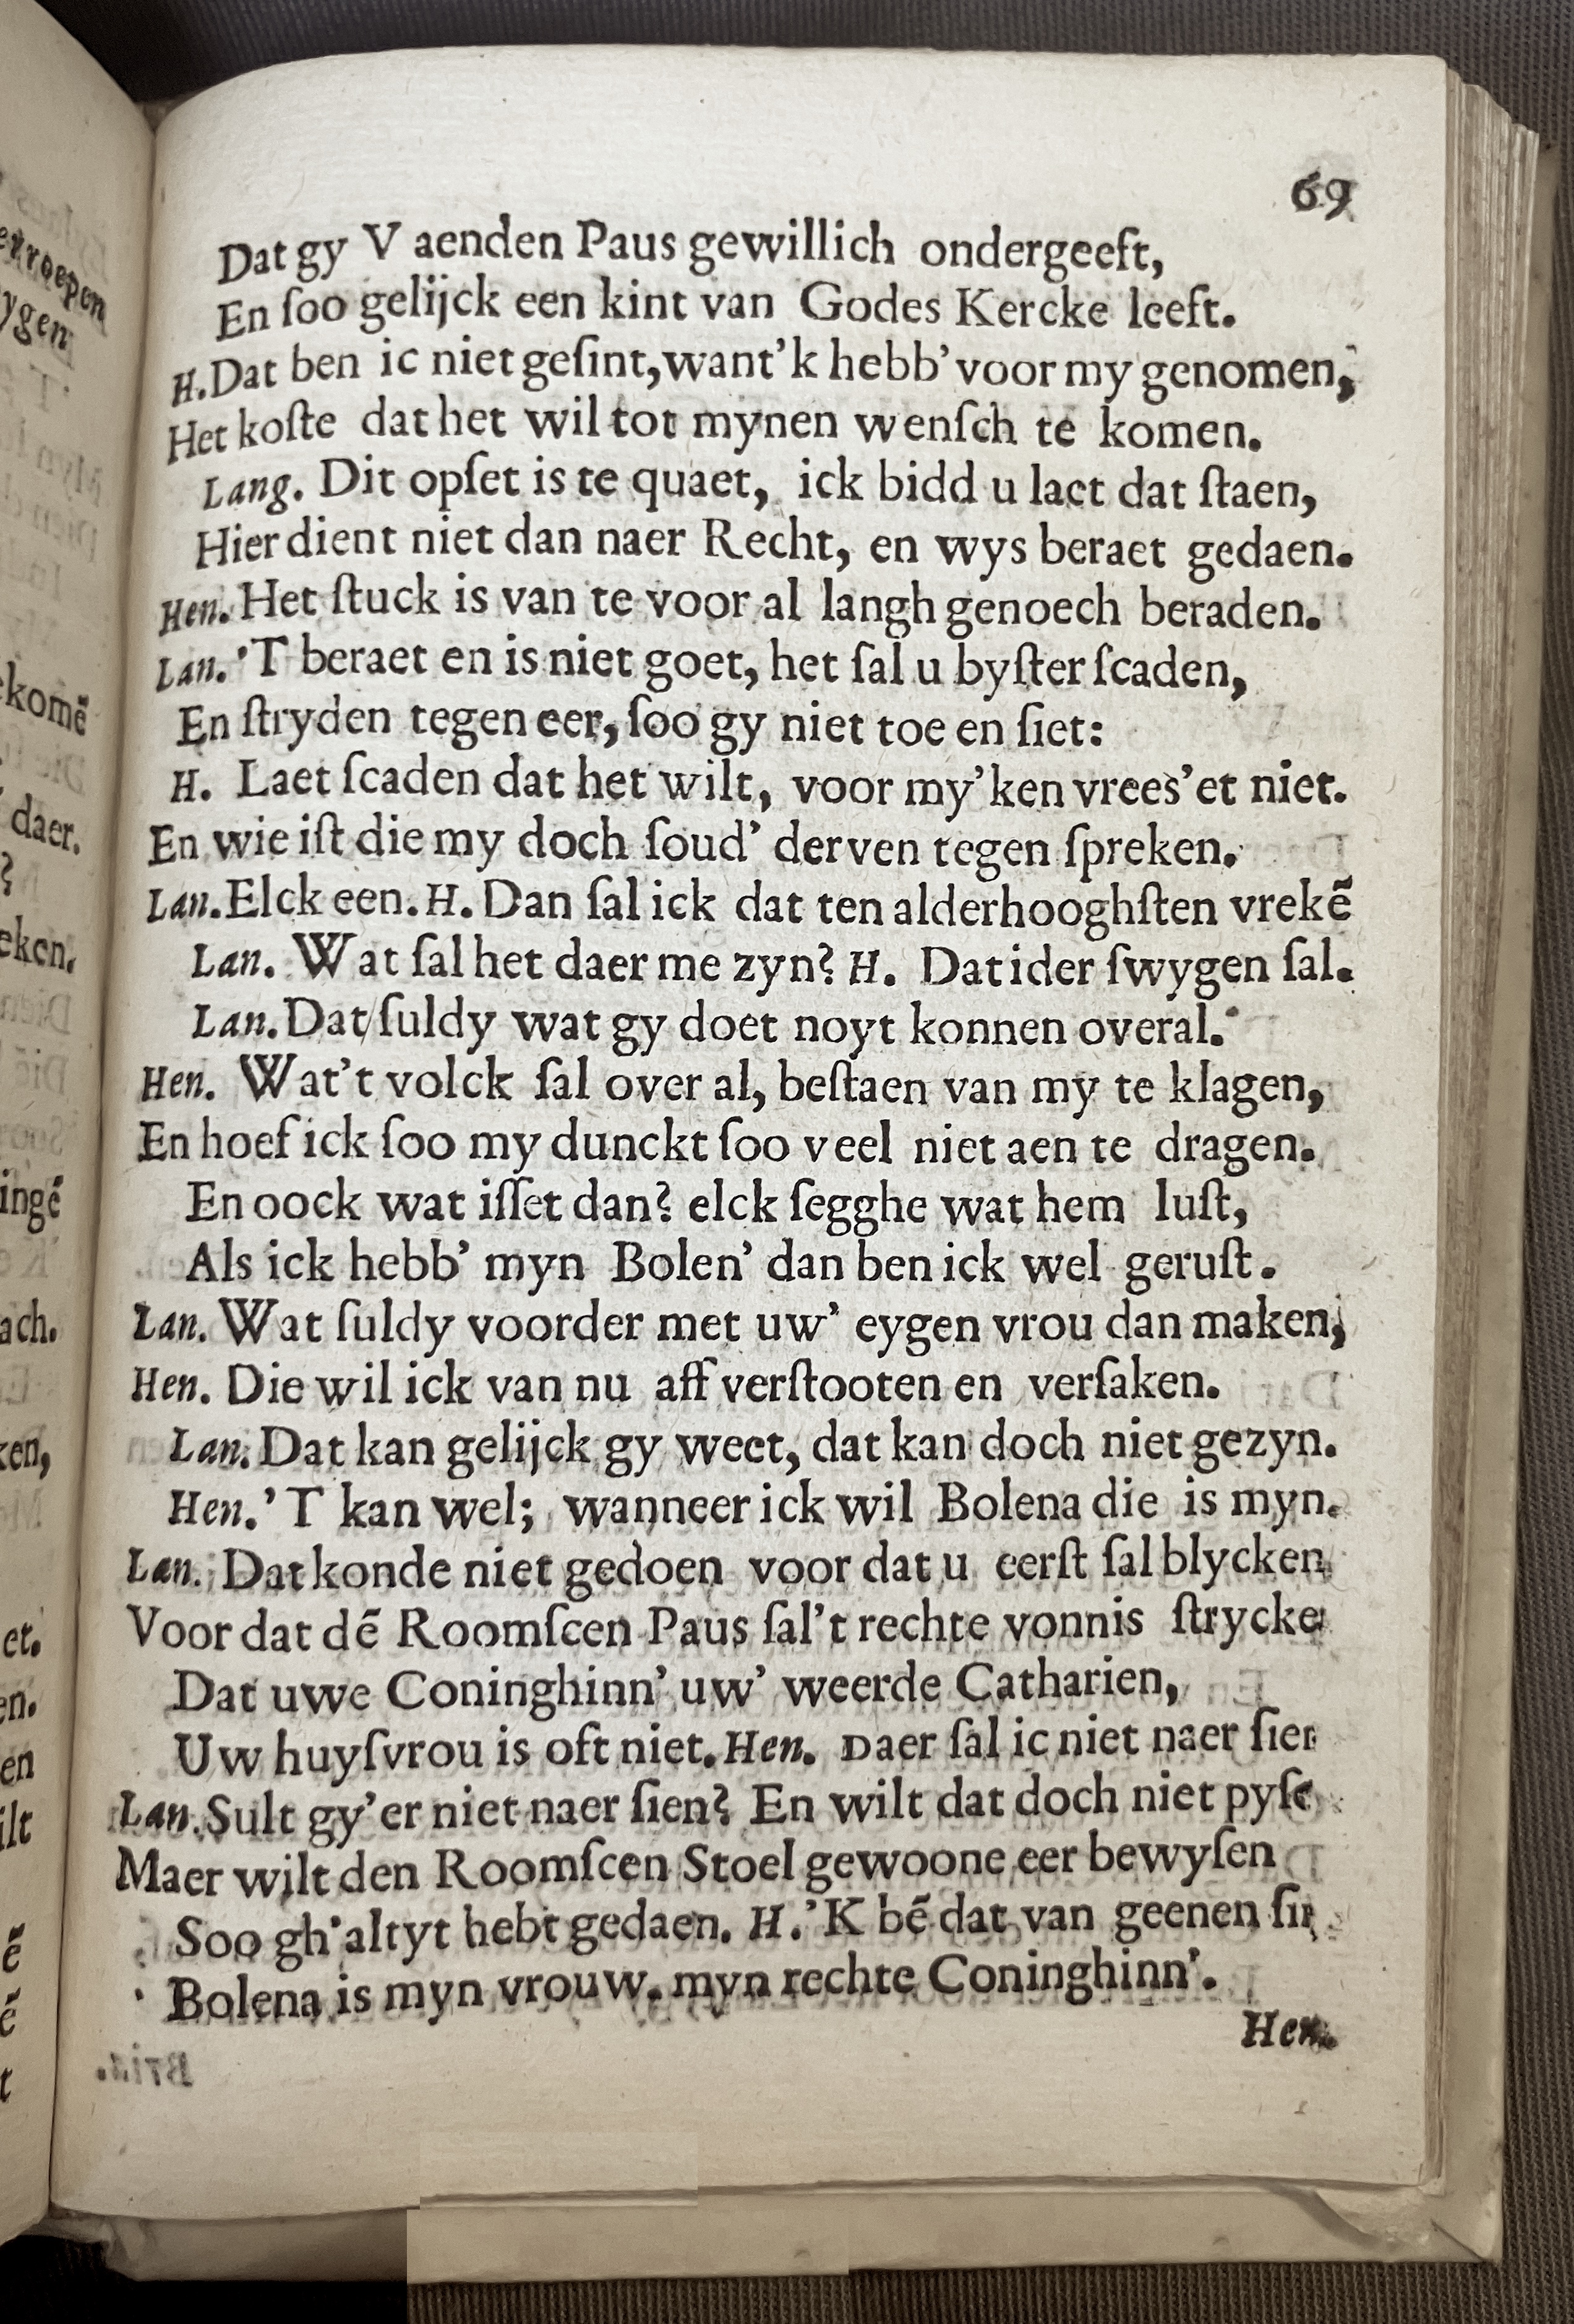 69
Dat gy V aenden Paus gewillich ondergeeft,
En ſoo gelijck een kint van Godes Kercke leeft.
H. Dat ben ic niet geſint, want'k hebb' voor my genomen,
Het koſte dat het wil tot mynen wenſch te komen.
Lang. Dit opſet is te quaet, ick bidd u laet dat ſtaen,
Hier dient niet dan naer Recht, en wys beraet gedaen.
Hen. Het ſtuck is van te voor al langh genoech beraden.
Lan. 'T beraet en is niet goet, het ſal u byſter ſcaden,
En ſtryden tegen eer, ſoo gy niet toe en ſiet:
H. Laet ſcaden dat het wilt, voor my 'ken vrees'et niet.
En wie iſt die my doch ſoud' derven tegen ſpreken.
Lan. Elck een. H. Dan ſal ick dat ten alderhooghſten vrekẽ
Lan. Wat ſal het daer me zyn? H. Dat ider ſwygen ſal.
Lan. Dat ſuldy wat gy doet noyt konnen overal.
Hen. Wat't volck ſal over al, beſtaen van my te klagen,
En hoef ick ſoo my dunckt ſoo veel niet aen te dragen.
En oock wat iſſet dan? elck ſegghe wat hem luſt,
Als ick hebb' myn Bolen' dan ben ick wel geruſt.
Lan. Wat ſuldy voorder met uw' eygen vrou dan maken;
Hen. Die wil ick van nu aff verſtooten en verſaken.
Lan. Dat kan gelijck gy weet, dat kan doch niet gezyn.
Hen. 'T kan wel; wanneer ick wil Bolena die is myn.
Lan. Dat konde niet gedoen voor dat u eerſt ſal blycken
Voor dat dẽ Roomſcen Paus ſal't rechte vonnis ſtrycke
Dat uwe Coninghinn' uw' weerde Catharien,
Uw huyſvrou is oft niet. Hen. Daer ſal ic niet naer ſien
Lan. Sult gy'er niet naer ſien? En wilt dat doch niet pyſe
Maer wilt den Roomſcen Stoel gewoone eer bewyſen
Soo gh'altyt hebt gedaen. H. 'K bẽ dat van geenen ſin
Bolena is myn vrouw. myn rechte Coninghinn'.
Hen.